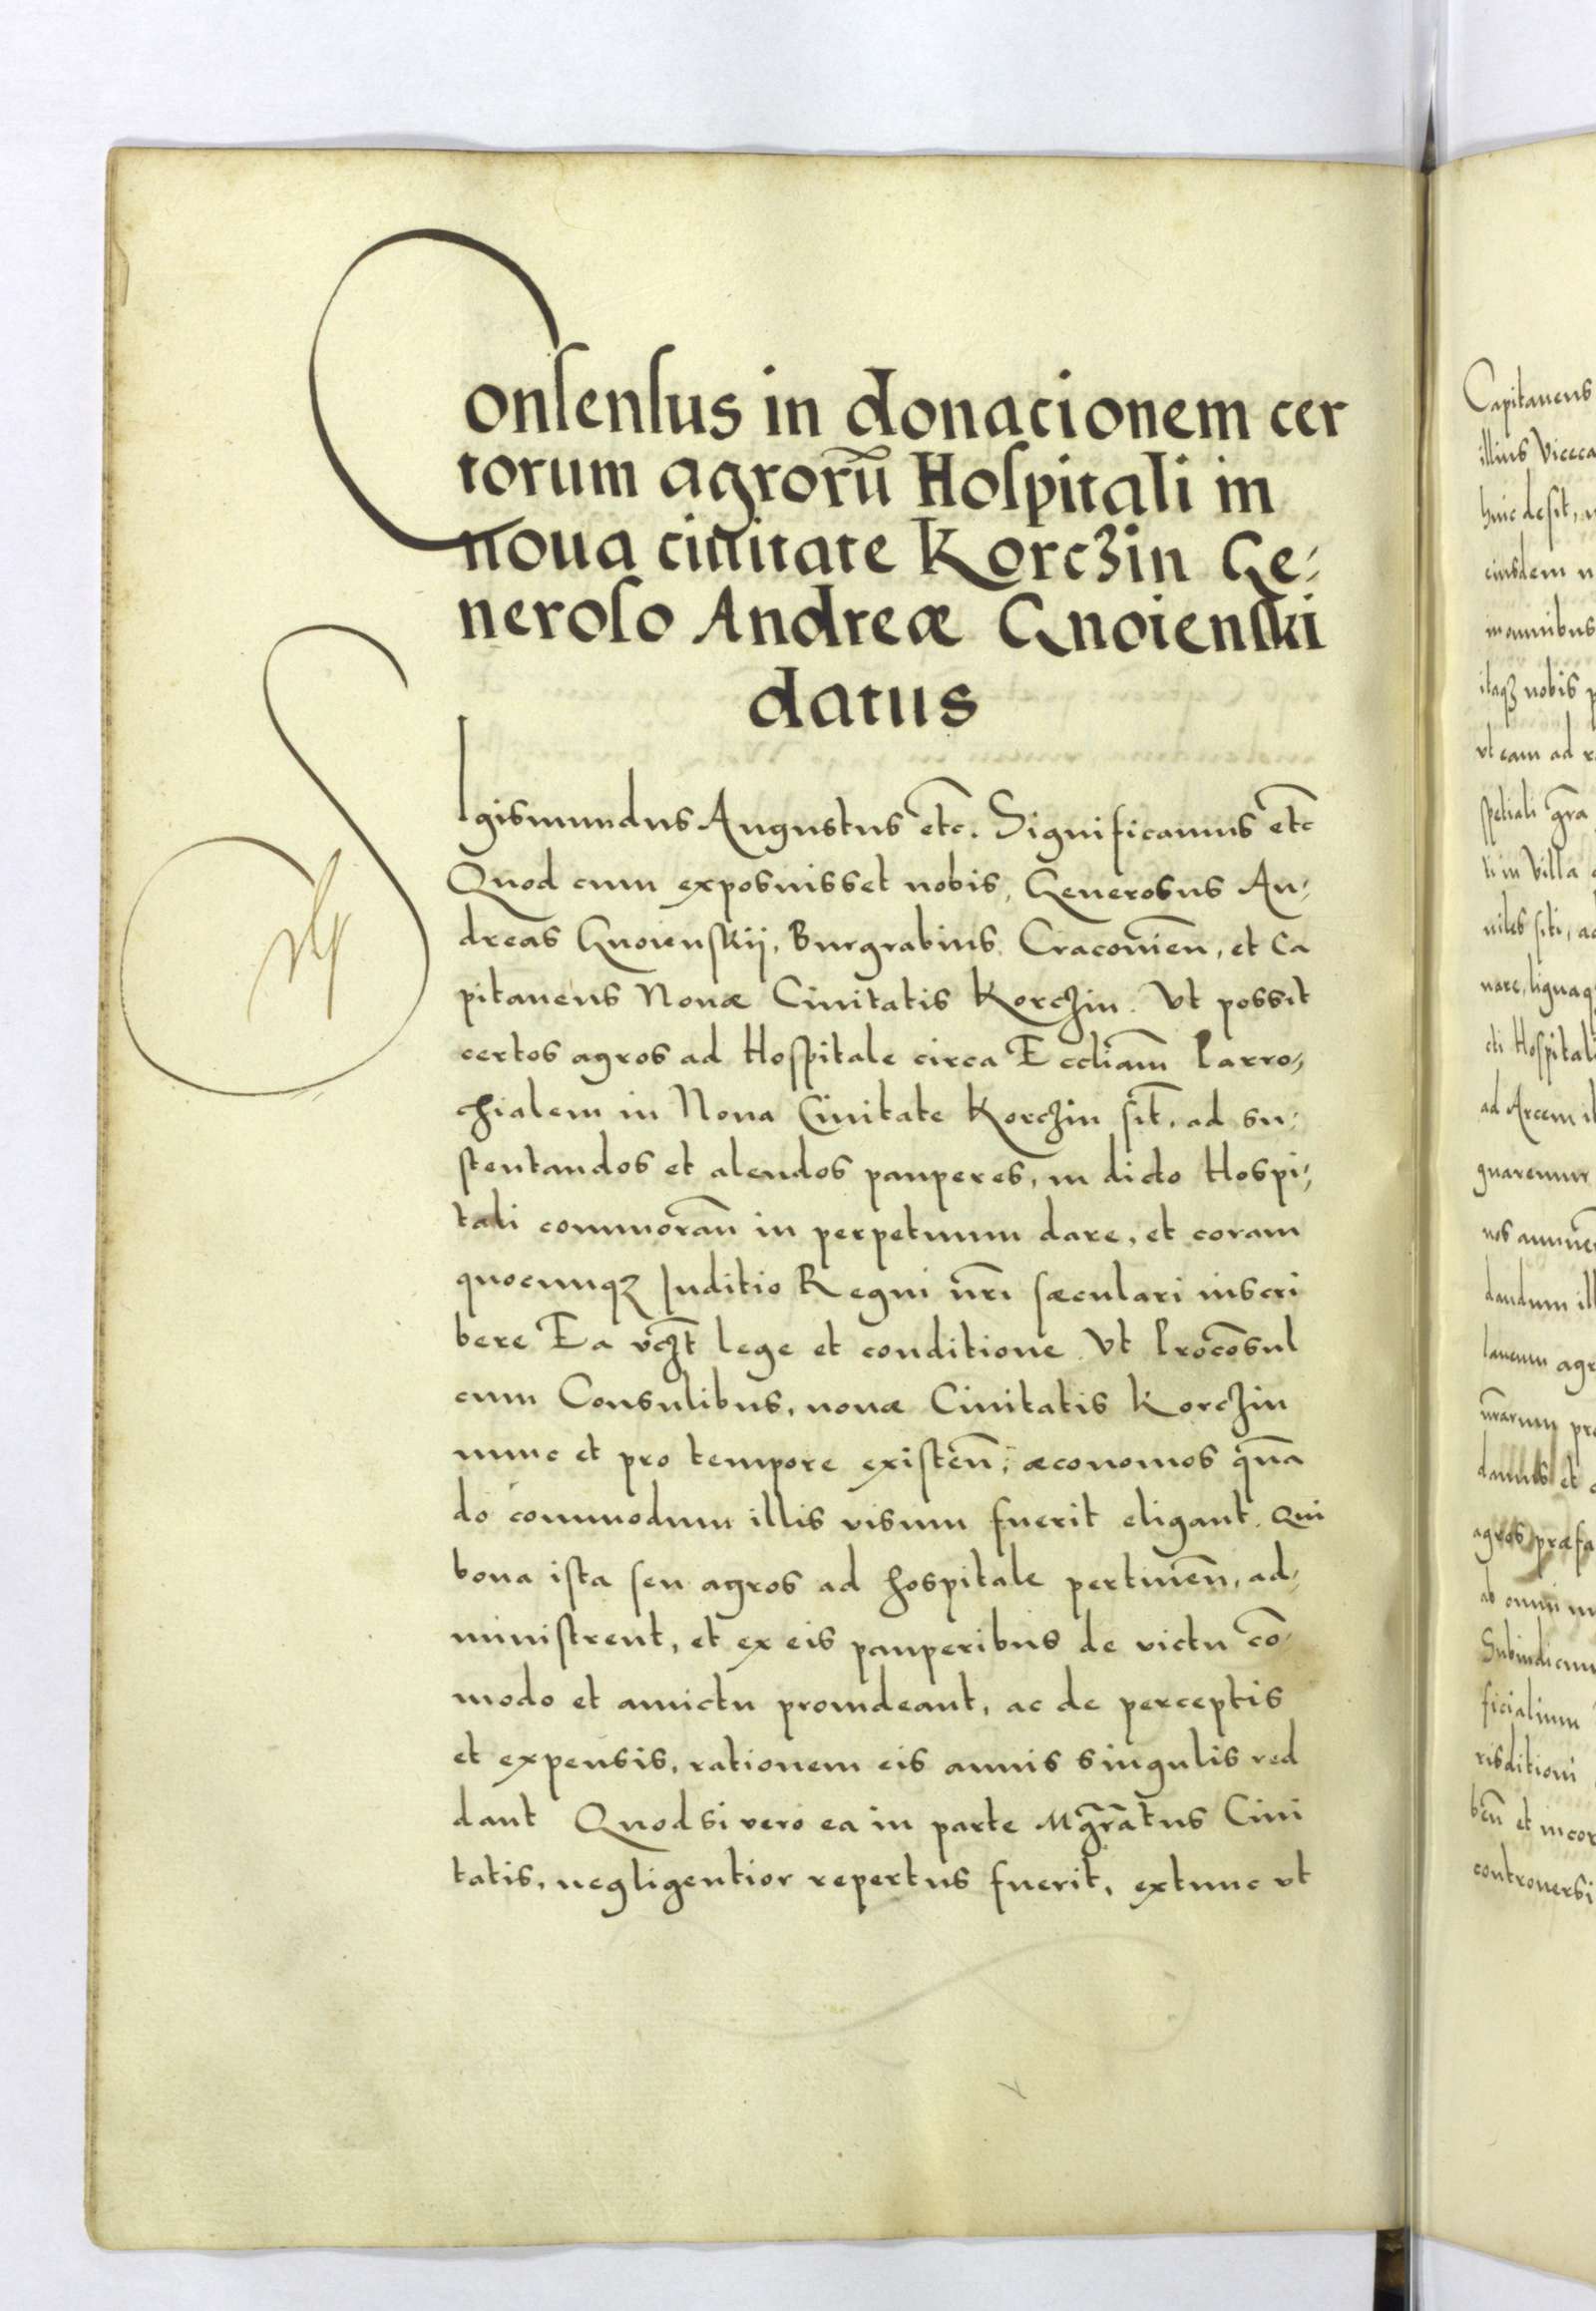 Consensus in donacionem cer
torum agrorū Hospitali in
noua ciuitate Korczin Ge⸗
neroso Andreæ Gnoienski
datus
Sigismundus Augustus etc. Significamus etc
Quod cum exposuisset nobis, Generosus An⸗
dreas Gnoienskij, Burgrabius Cracouien̄, et Ca
pitaneus Nouæ Ciuitatis Korczin. Vt possit
certos agros ad Hospitale circa Eccliam̄ Parro⸗
chialem in Noua Ciuitate Korczin sit̄, ad su⸗
stentandos et alendos pauperes, in dicto Hospi⸗
tali commoran̄ in perpetuum dare, et coram
quocunqꝫ Iuditio Regni nr̄i sæculari inscri
bere Ea vcꝫt̄ lege et conditione Vt Procōsul
cum Consulibus, nouæ Ciuitatis Korczin
nunc et pro tempore existen̄, æconomos qn̄a
do commodum illis visum fuerit eligant. Qui
bona ista seu agros ad hospitale pertinen̄, ad⸗
ministrent, et ex eis pauperibus de victu cō⸗
modo et amictu prouideant, ac de perceptis
et expensis, rationem eis annis singulis red
dant Quod si vero ea in parte Mgr̄atus Ciui
tatis, negligentior repertus fuerit, extunc vt
Capitaneus
illius Viceca
huic desit,
eiusdem
in omnibus
itaqꝫ nobis
vt eam ad
spetiali gr̄a
ti in Villa
dandum
laneum agr
agros præfa
ab omni
ficialium
risditioni
controuersi